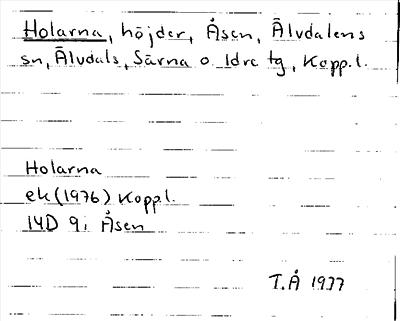 Holarna, höjder, Åsen, Älvdalens
sn, Älvdals, Särna o. Idre tg, Kopp.l.
Holarna
ek (1976) Kopp.l.
14D 9i Åsen
T.Å 1977